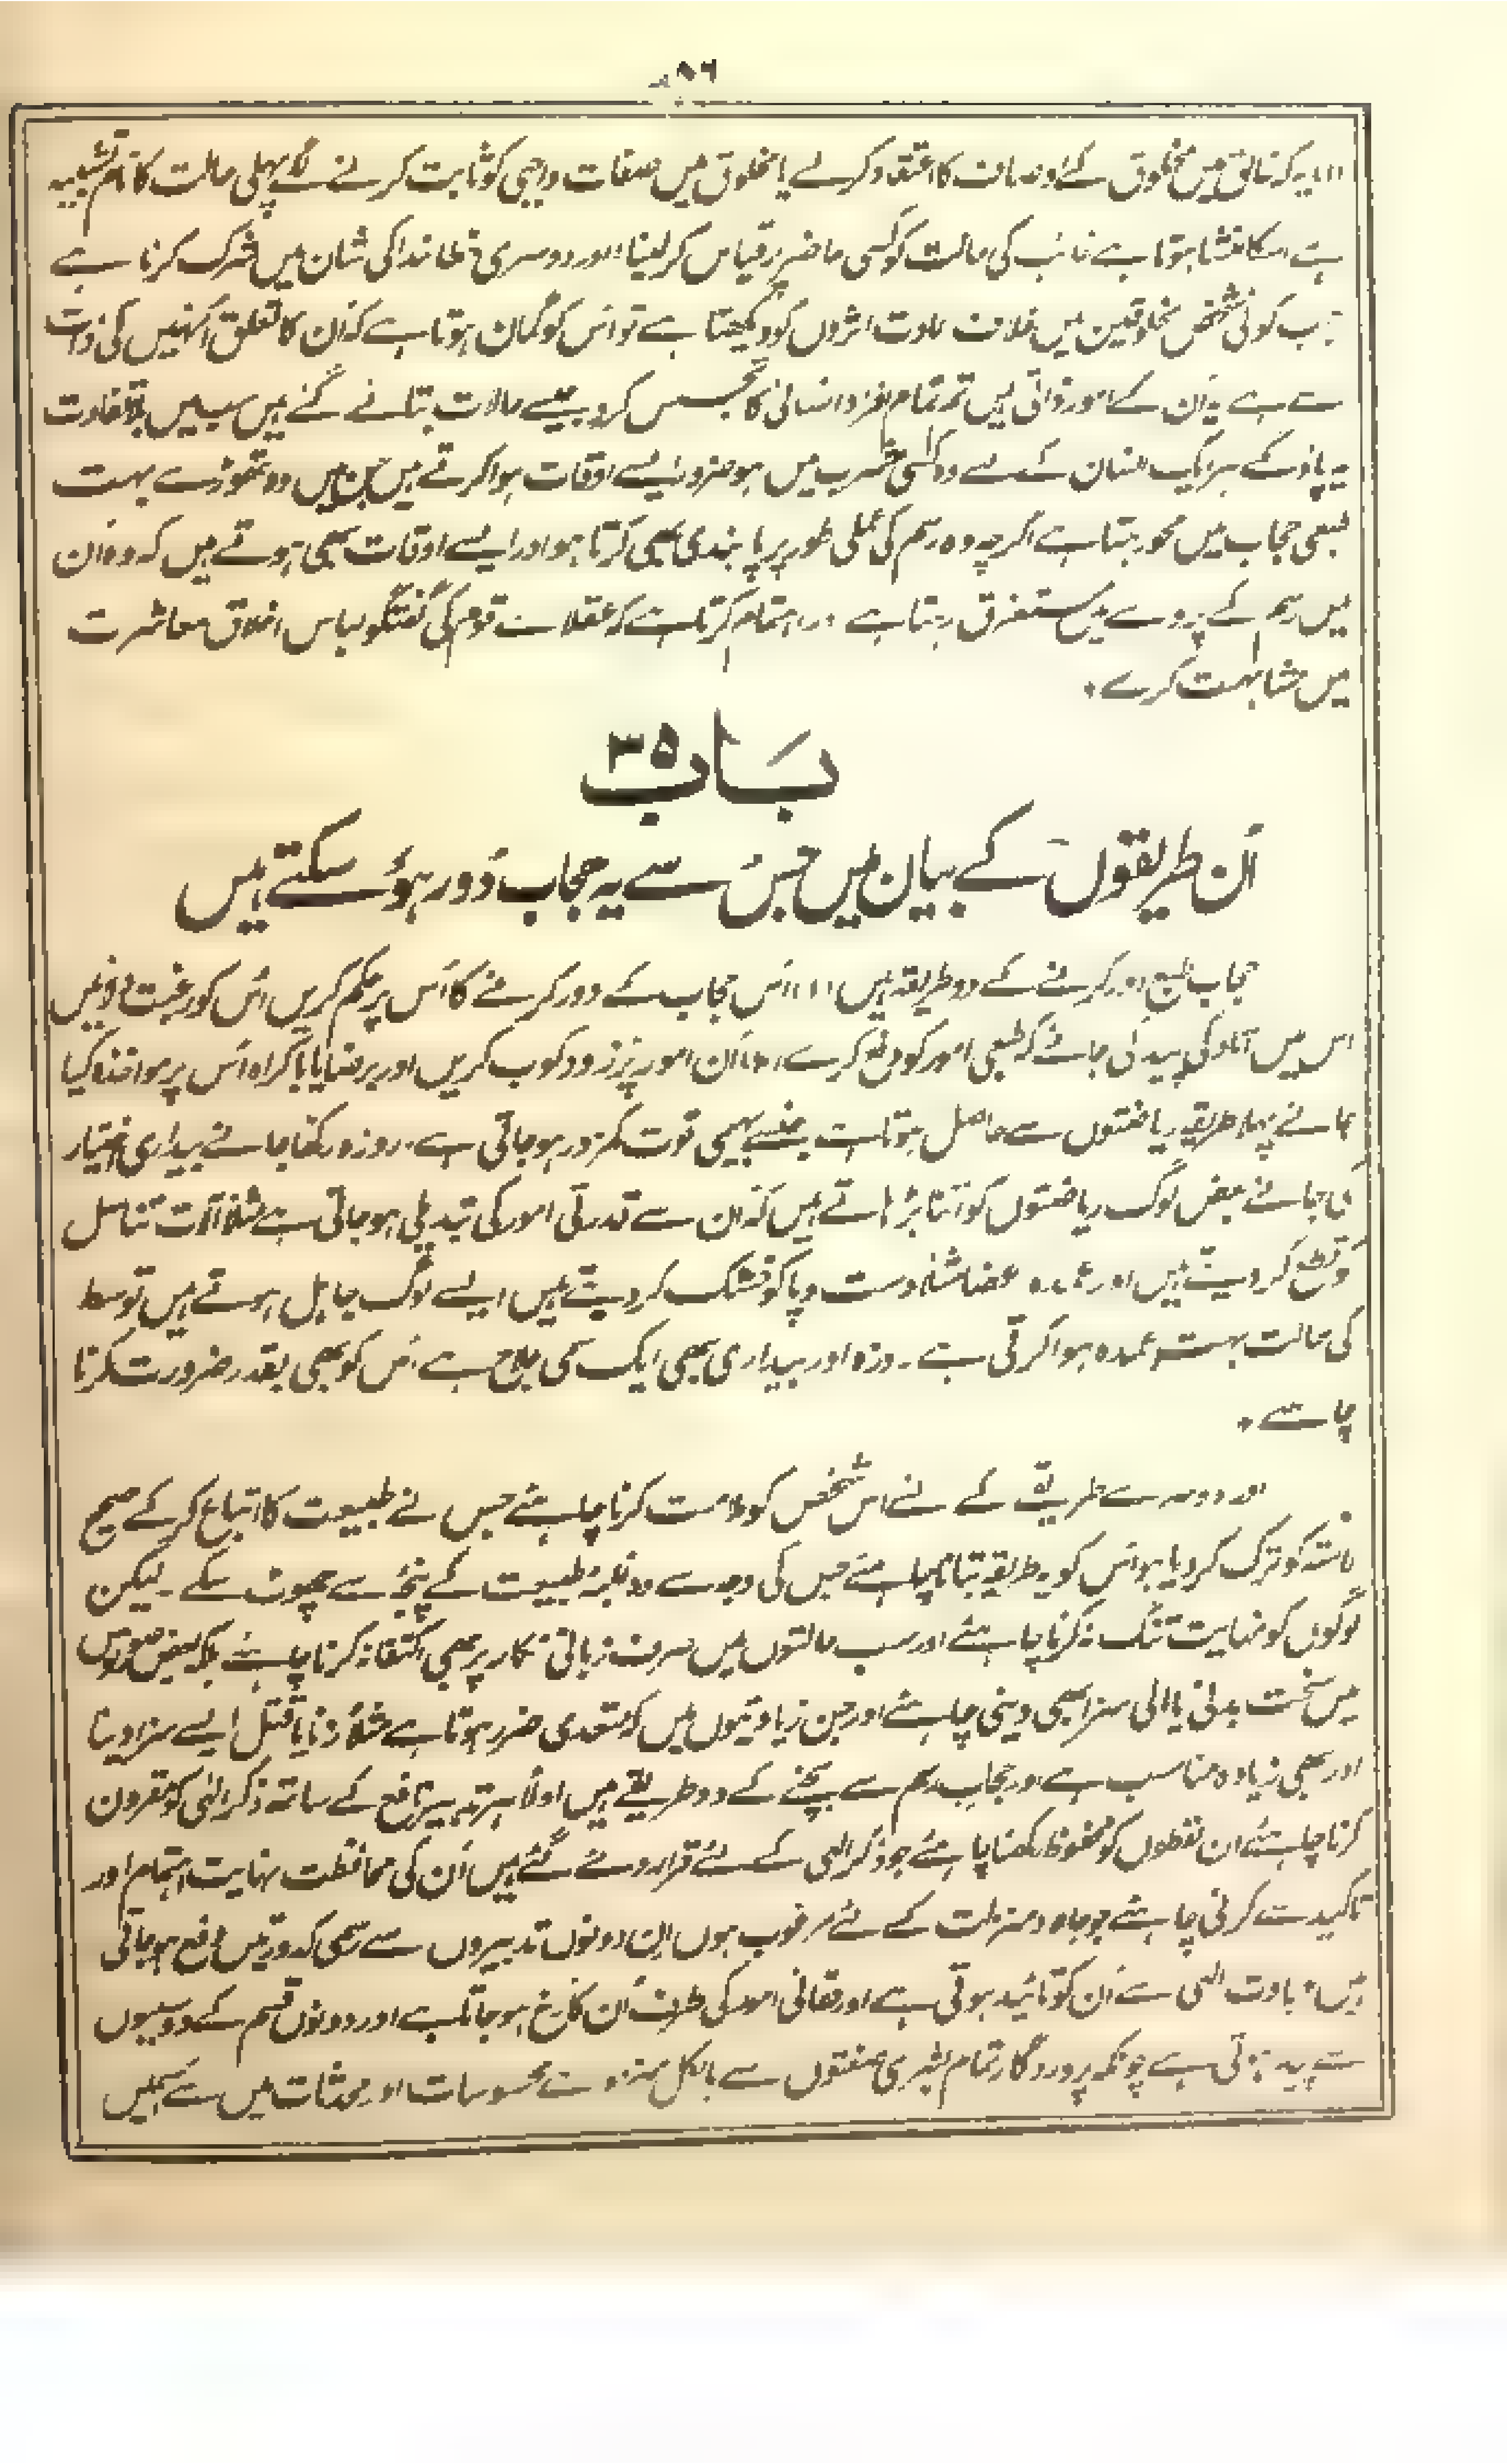 ۵۶
(۱) یہ کہ خالق میں مخلوق کے اوصاف کا اعتقاد کرلے یا مخلوق میں صفات واجبی کو ثابت کرنے لگے پہلی حالت کا نام تشبیہ
ہے اسکا منشا ہوتا ہے غائب کی حالت کو کسی حاضر پر قیاس کرلینا اور دوسری خطا خدا کی شان میں شرک کرنا ہے
جب کوئی شخص مخلوقین میں خلاف عادت اثروں کو دیکھتا ہے تو اس کو گمان ہوتا ہے کہ اُن کا تعلق اُنہیں کی ذات
سے ہے یہ اُن کے امور ذاتی ہیں تم تمام افراد انسانی کا تجسس کرو جیسے حالات بتائے گئے ہیں سب میں بلا تفاوت
یہ پاؤ گے ہر ایک انسان کے لئے وہ کسی مشرب میں ہو ضرور ایسے اوقات ہوا کرتے ہیں جن میں وہ تھوڑے بہت
طبعی حجاب میں محو رہتا ہے اگرچہ وہ رسم کی عملی طور پر پابندی بھی کرتا ہو اور ایسے اوقات بھی ہوتے ہیں کہ وہ اُن
میں رسم کے پردے میں مستغرق رہتا ہے اور اہتمام کرتا ہے کہ عقلاے قوم کی گفتگو لباس اخلاق معاشرت
میں مشابہت کرے۔
باب ۳۵
اُن طریقوں کے بیان میں جس سے یہ حجاب دُور ہوسکتے ہیں
حجاب طبع دور کرنے کے دو طریقہ ہیں (۱) اُس حجاب کے دور کرنے کا اُس پر حکم کریں اُس کو رغبت دیں
اس میں آمادگی پیدا کی جائے کہ طبعی امور کو دفع کرے (۲) اُن امور پر زدوکوب کریں اور برضا یا باکراہ اُس پر مواخذہ کیا
جائے پہلا طریقہ ریاضتوں سے حاصل ہوتا ہے جنسے بہیمی قوت کمزور ہوجاتی ہے۔ روزہ رکھا جائے بیداری اختیار
کی جائے بعض لوگ ریاضتوں کو اتنا بڑھاتے ہیں کہ اُن سے قدرتی امور کی تبدیلی ہوجاتی ہے مثلاً آلات تناسل
کو قطع کردیتے ہیں اور عمدہ اعضا مثلاً دست و پا کو خشک کردیتے ہیں ایسے لوگ جاہل ہوتے ہیں توسط
کی حالت بہت عمدہ ہوا کرتی ہے۔ روزہ اور بیداری بھی ایک سمی علاج ہے اُس کو بھی بقدر ضرورت کرنا
چاہیے۔
اور دوسرے طریقے کے لئے اس شخص کو ملامت کرنا چاہئے جس نے طبیعت کا اتباع کرکے صحیح
راستہ کو ترک کردیا ہو اُس کو یہ طریقہ بتانا چاہئے جس کی وجہ سے وہ غلبۂ طبیعت کے پنجہ سے چھوٹ سکے۔ لیکن
لوگوں کو نہایت تنگ نہ کرنا چاہئے اور سب حالتوں میں صرف زبانی انکار پر بھی اکتفا نہ کرنا چاہئے بلکہ بعض صورتوں
میں سخت بدنی یا مالی سزا بھی دینی چاہئے اور جن زیادتیوں میں کہ متعدی ضرر ہوتا ہے مثلاً زنا یا قتل ایسے سزا دینا
اور بھی زیادہ مناسب ہے اور حجاب رسم سے بچنے کے دو طریقے ہیں اولاً ہر تدبیر نافع کے ساتھ ذکر الٰہی کو مقرون
کرنا چاہئے ان لفظوں کو محفوظ رکھنا چاہئے جو ذکر الٰہی کے لئے قرار دئے گئے ہیں اُن کی محافظت نہایت اہتمام اور
تاکید سے کرنی چاہئے جو جاہ و منزلت کے لئے مرغوب ہوں ان دونوں تدبیروں سے رسمی کدورتیں دفع ہوجاتی
ہیں عبادت الٰہی سے اُن کو تائید ہوتی ہے اور حقانی امور کی طرف اُن کا رخ ہوجاتا ہے اور دونوں قسم کے دو سببوں
سے پیدا ہوتی ہے چونکہ پروردگار تمام بشری صفتوں سے بالکل منزہ ہے محسوسات اور محدثات میں سے اسمیں